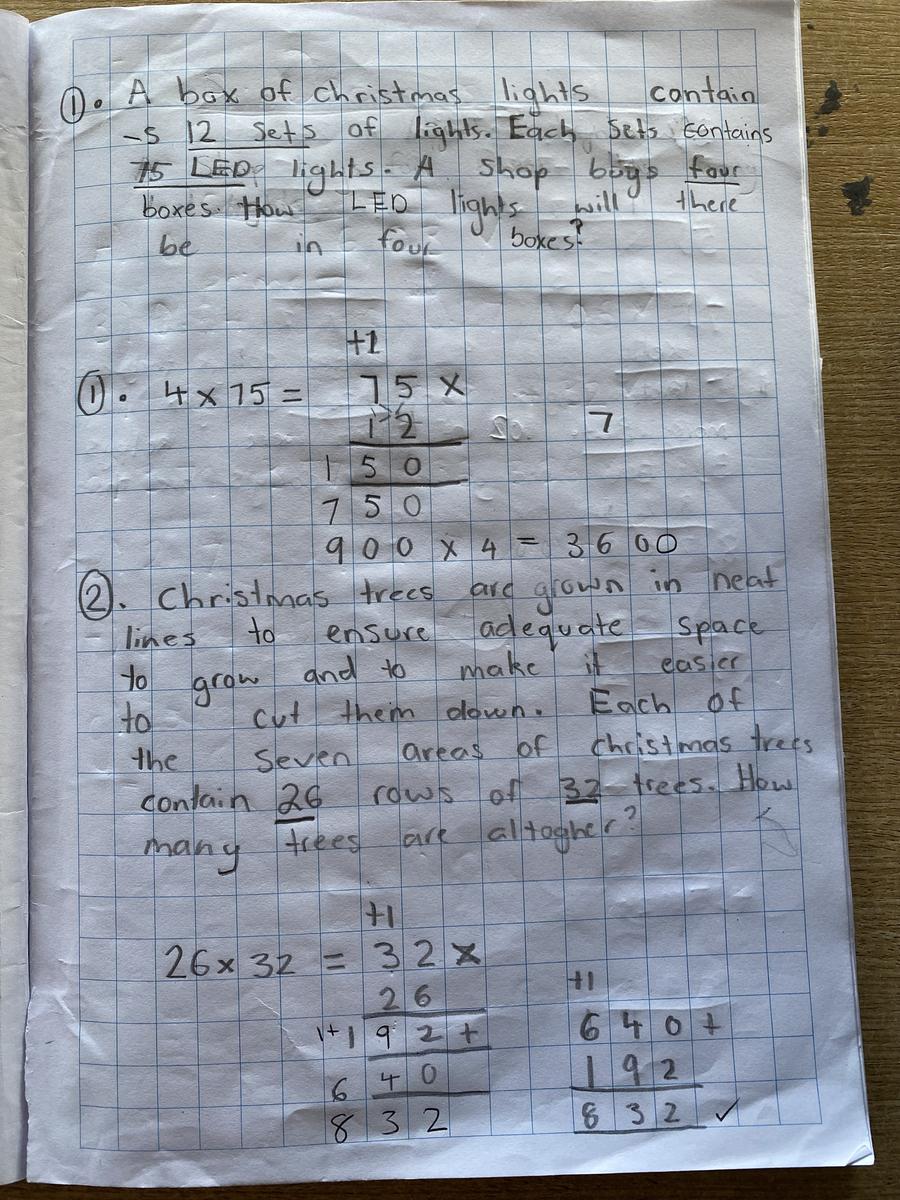 ①. A box of christmas lights contain
-s 12 sets of lights. Each sets contains
75 LED lights. A shop buys four
boxes. How LED lights will there
be in four boxes?
+1
①. 4 x 75 = 75 x
12 So. 7
150
750
900 x 4 = 3600
②. Christmas trees are grown in neat
lines to ensure adequate space
to grow and to make it easier
to cut them down. Each of
the seven areas of christmas trees
contain 26 rows of 32 trees. How
many trees are altogher?
+1
26 x 32 = 32 x
26 +1
1+1 92 + 640 +
640 192
832 832 ✓